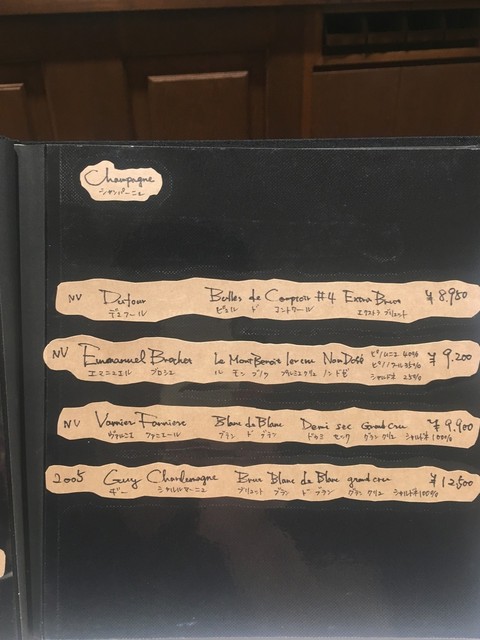 Champagne
シャンパーニュ
NV Dufour Bulles de Comptoir #4 Extra Brut ¥8,950
デュフール ビュル ド コントワール エクストラ ブリュット
NV Emmanuel Brochet Le Mont Benoit 1er cru Non Dosé ピノムニエ40% ¥9,200
エマニュエル ブロシェ ル モン ブノワ プルミエクリュ ノンドゼ ピノノワール35%
シャルドネ 25%
NV Varnier Fanniere Blanc de Blanc Demi sec Grand cru ¥9,900
ヴァルニエ ファニエール ブラン ド ブラン ドゥミ セック グラン クリュ シャルドネ100%
2005 Guy Charlemagne Brut Blanc de Blanc grand cru ¥12,500
ギー シャルルマーニュ ブリュット ブラン ド ブラン グラン クリュ シャルドネ100%